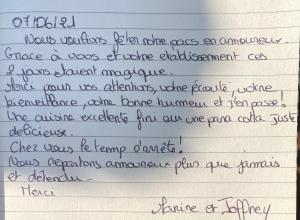 07/06/21
Nous voulions fêter notre pacs en amoureux.
Grace à vous et votre etablissement ces
2 jours etaient magique.
Merci pour vos attentions, votre écoute, votre
bienveillance, votre bonne humeur et j'en passe!
Une cuisine excellente fini sur une pana cotta juste
delicieuse.
Chez vous le temp d'arrête!
Nous repartons amoureux plus que jamais
et detendu.
Merci
et Joffrey